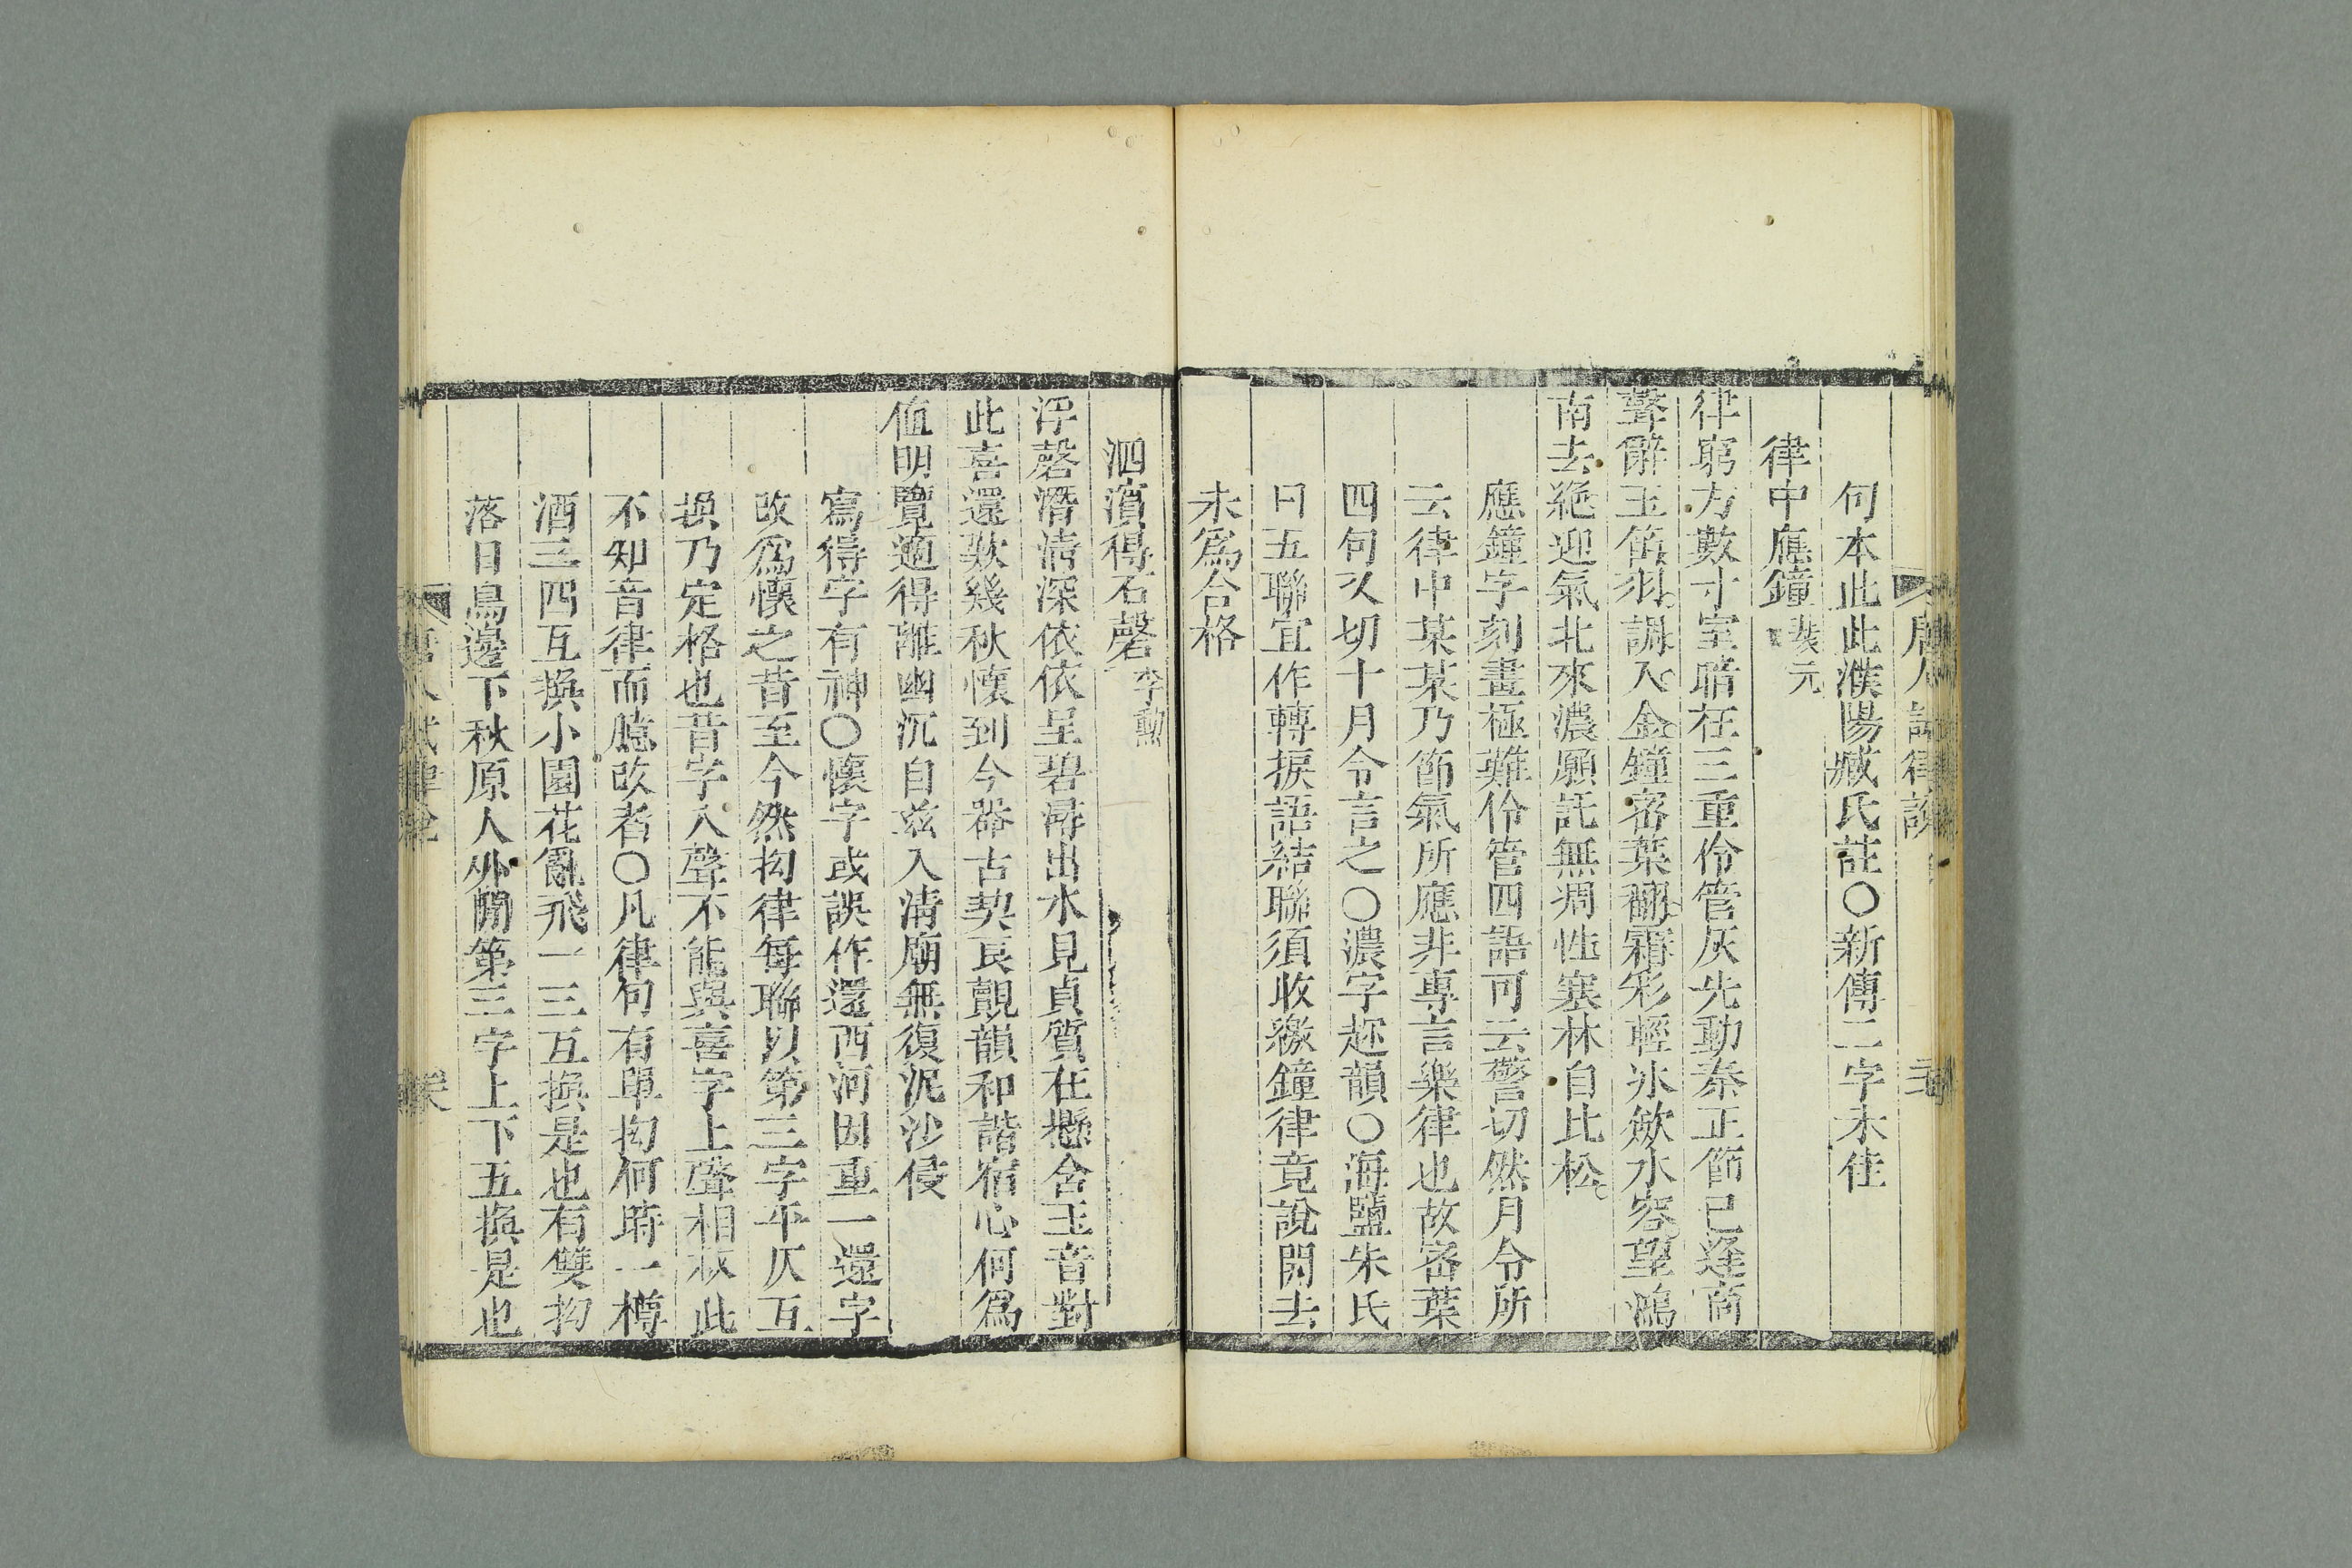 句本此此濮陽臧氏註○新傳二字未佳
律中應鐘 裴元
律窮方數寸室暗在三重伶管灰先動秦正節已逢商
聲辭玉笛羽調入金鐘密葉翻霜彩輕冰斂水容望鴻
南去絕迎氣北來濃願託無凋性寒林自比松
應鐘字刻畫極難伶管四語可云警切然月令所
云律中某某乃節氣所應非專言樂律也故密葉
四句又切十月令言之○濃字趂韻○海鹽朱氏
曰五聯宜作轉捩語結聯須收繳鐘律竟說開去
未爲合格
泗濱得石磬 李勲
浮磬潛清深依依呈碧潯出水見貞質在懸含玉音對
此喜還歎幾秋懷到今器古契良覿韻和諧宿心何爲
值明覽適得離幽沉自茲入清廟無復泥沙侵
寫得字有神○懷字或誤作還西河因重一還字
改爲懷之昔至今然拗律每聯以第三字平仄互
換乃定格也昔字入聲不能與喜字上聲相救此
不知音律而臆改者○凡律句有單拗何時一樽
酒三四互換小園花亂飛一三互換是也有雙拗
落日鳥邊下秋原人外閒第三字上下互換是也
唐人試律說